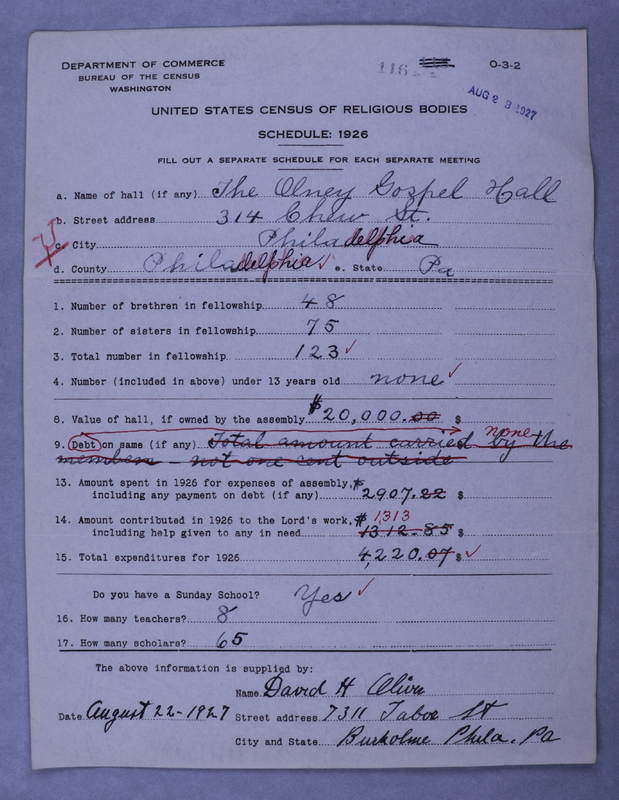 DEPARTMENT OF COMMERCE
BUREAU OF THE CENSUS
WASHINGTON
116
O-3-2
AUG 23 1927
UNITED STATES CENSUS OF RELIGIOUS BODIES
SCHEDULE: 1926
FILL OUT A SEPARATE SCHEDULE FOR EACH SEPARATE MEETING
a. Name of hall (if any) The Olney Gospel Hall
b. Street address 314 Chew St.
c. City Philadelphia
d. County Philadelphia ✓ e. State Pa
1. Number of brethren in fellowship 48
2. Number of sisters in fellowship 75
3. Total number in fellowship 123 ✓
4. Number (included in above) under 13 years old none ✓
8. Value of hall, if owned by the assembly $20,000.00 $
none
9. Debt on same (if any) Total amount carried by the
members - not one cent outside
13. Amount spent in 1926 for expenses of assembly, $
including any payment on debt (if any) 2907.22 $
14. Amount contributed in 1926 to the Lord's work, $ 1313
including help given to any in need 1312.85 $
15. Total expenditures for 1926 4,220.07 $ ✓
Do you have a Sunday School? Yes ✓
16. How many teachers? 8
17. How many scholars? 65
The above information is supplied by:
Name David H Oliva
Date August 22-1927 Street address 7311 Tabor St
City and State Burholme Phila. Pa